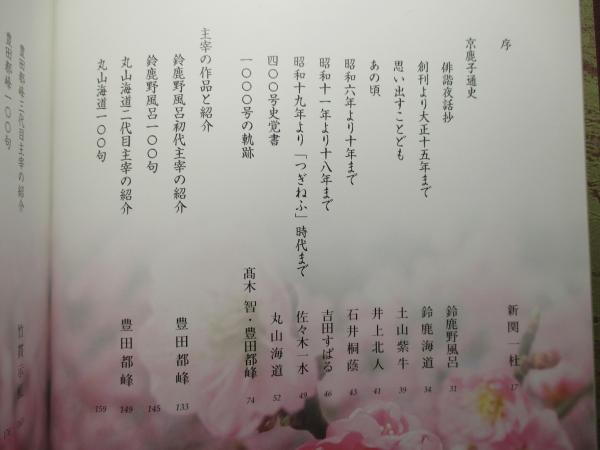 序 新関一杜 17
京鹿子通史
俳諧夜話抄 鈴鹿野風呂 31
創刊より大正十五年まで 鈴鹿海道 34
思い出すことども 土山紫牛 39
あの頃 井上北人 41
昭和六年より十年まで 石井桐蔭 43
昭和十一年より十八年まで 吉田すばる 46
昭和十九年より「つぎねふ」時代まで 佐々木一水 49
四〇〇号史覚書 丸山海道 52
一〇〇〇号の軌跡 髙木智・豊田都峰 74
主宰の作品と紹介
鈴鹿野風呂初代主宰の紹介 豊田都峰 133
鈴鹿野風呂一〇〇句 145
丸山海道二代目主宰の紹介 豊田都峰 149
丸山海道一〇〇句 159
豊田都峰三代目主宰の紹介
豊田都峰一〇〇句